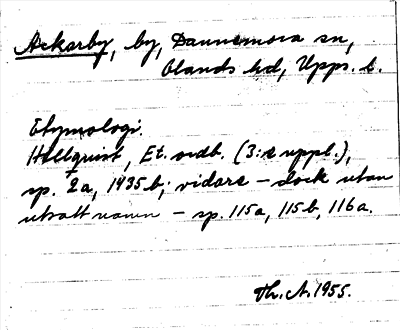 Ackarby, by, Dannemora sn,
Olands hd, Upps. l.
Etymologi.
Hellquist, Et. ordb. (3:e uppl.),
sp. 2a, 1435b; vidare – dock utan
utsatt namn – sp. 115a, 115b, 116a.
Th. A. 1955.